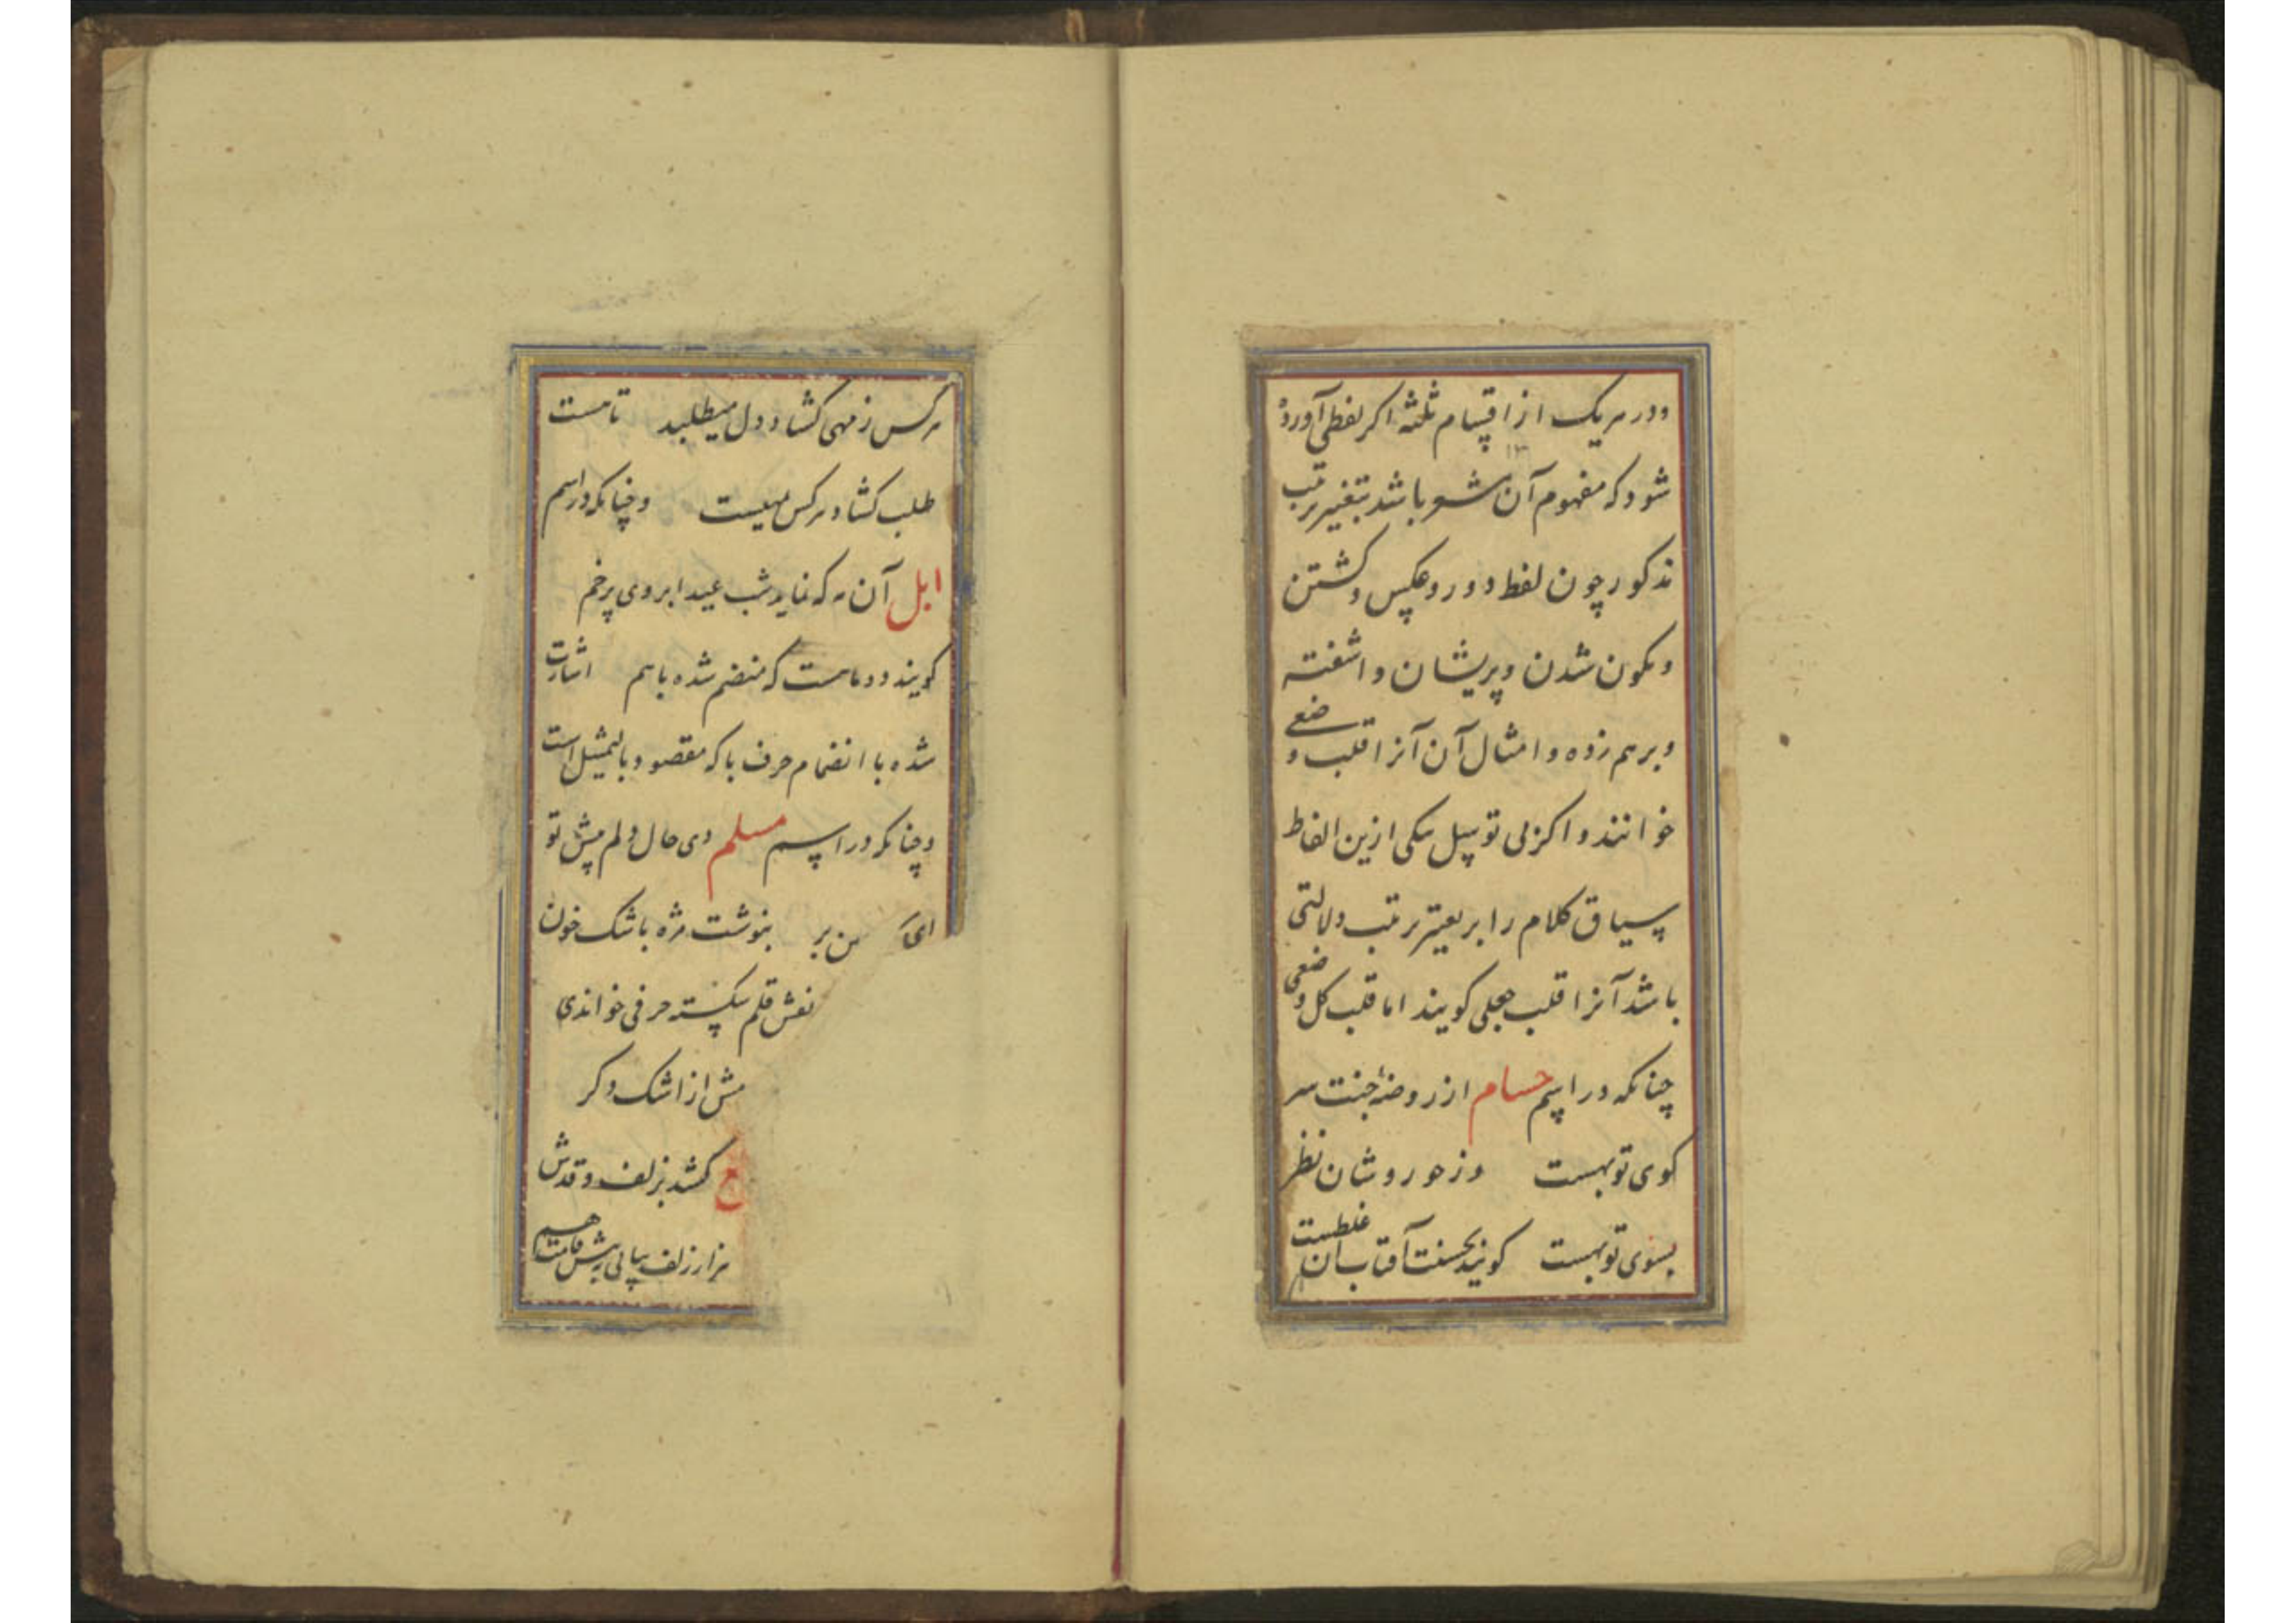 ودر هریک از اقسام ثلثه اکر لفظی آورده
شود که مفهوم آن مشعر باشد بتغییر ترتیب
مذکور چون لفظ دور و عکس و کشتن
ونکون شدن وپریشان و اشفته
وبرهم زده و امثال آن آنرا قلب وضعی
خوانند و اکر بی توسل یکی ازین الفاظ
سیاق کلام را بر تغییر ترتیب دلالتی
باشد آنرا قلب جعلی کویند اما قلب کل وضعی
چنانکه در اسم حسام از روضهٔ جنت سر
کوی تو بهست وز حور وشان نظر
بسوی تو بهست کویند بحسنت آفتاب آن غلطست
هر کس ز مهی کشاد دل میطلبد تا هست
طلب کشاد هر کس میست وچنانکه در اسم
ابل آن مه که نماید شب عید ابروی پر خم
کویند دو ماهست که منضم شده باهم اشارت
شده با انضمام حرف با که مقصود بالتمثیل است
وچنانکه در اسم مسلم دی حال دلم پیش تو
ای من بر بنوشت مژه باشک خون
نقش قلم شکسته حرفی خواندی
مش از اشک دکر
کشد بزلف و قدش
هزار زلف بپای پیش قامت هم